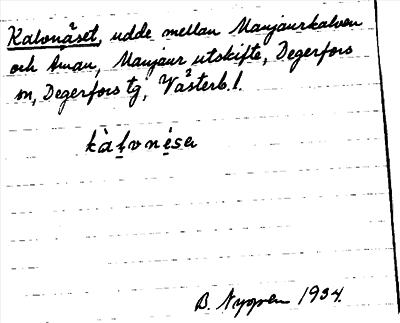 Kalvnäset, udde mellan Manjaurkalven
och Åman, Manjaur utskifte, Degerfors
sn, Degerfors tg, Västerb. l.
kàḷvnésa
B. Nygren 1934.